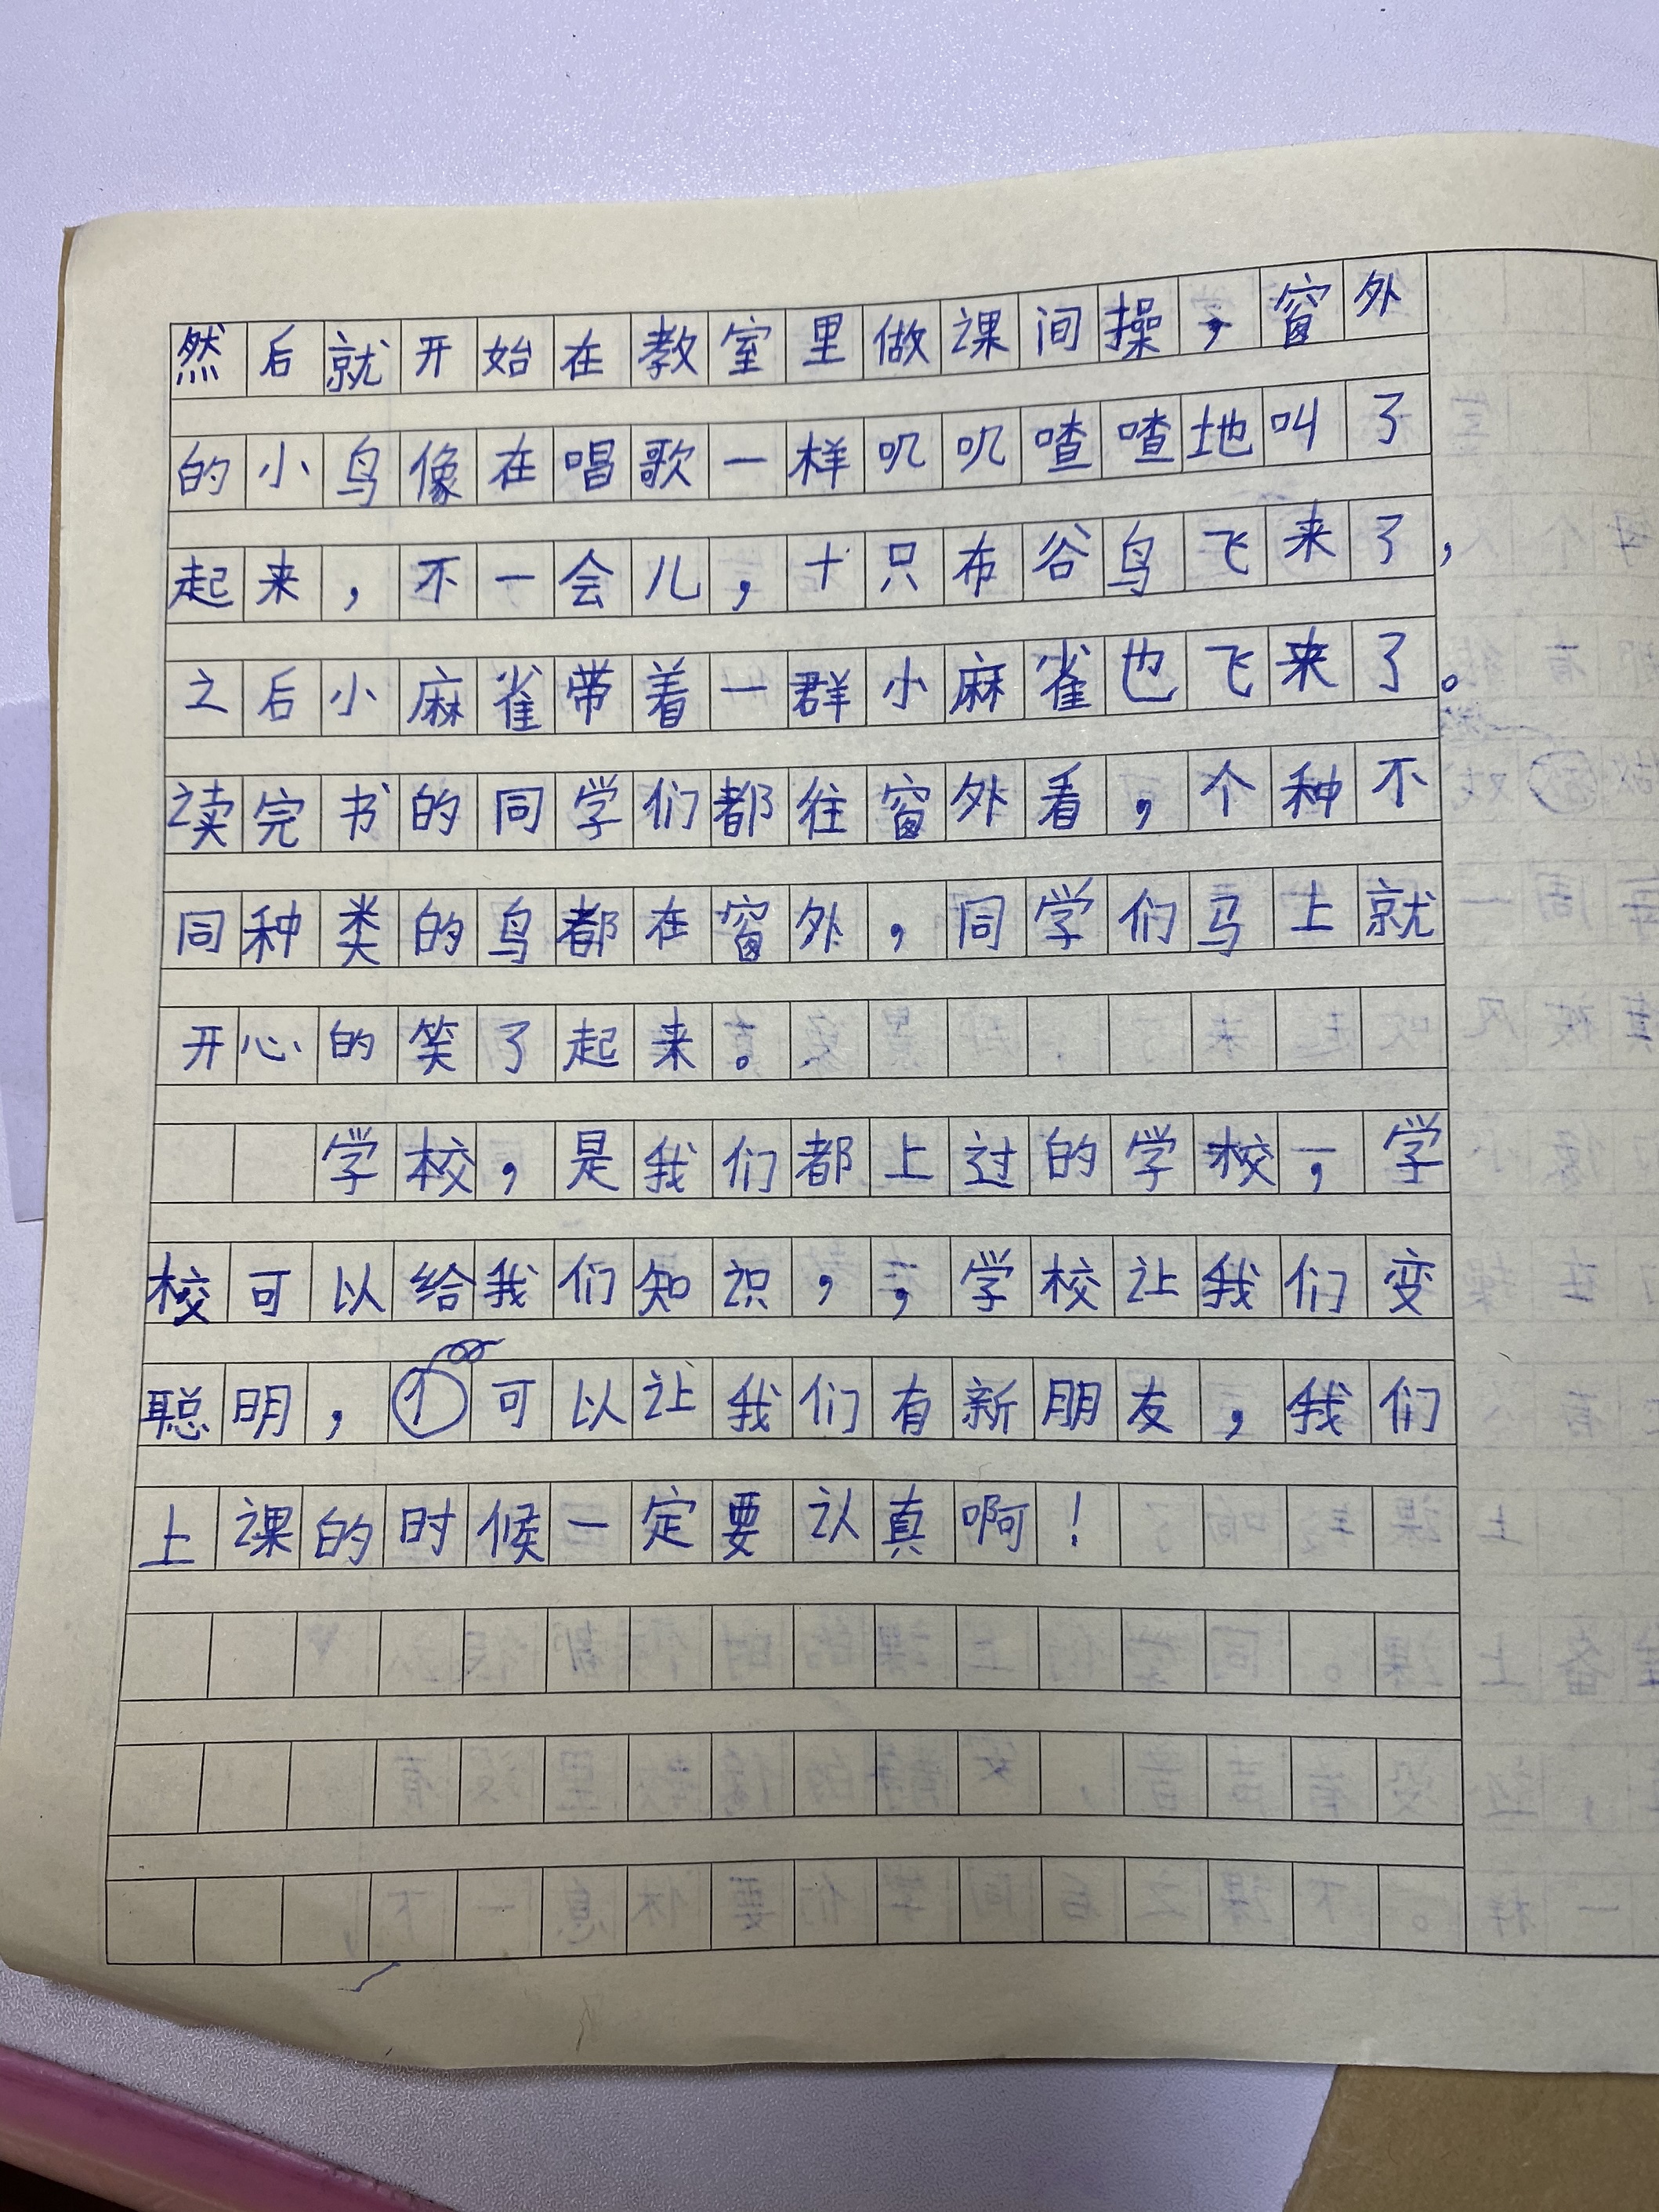 然后就开始在教室里做课间操，窗外
的小鸟像在唱歌一样叽叽喳喳地叫了
起来，不一会儿，十只布谷鸟飞来了，
之后小麻雀带着一群小麻雀也飞来了。
读完书的同学们都往窗外看，个种不
同种类的鸟都在窗外，同学们马上就
开心的笑了起来。
学校，是我们都上过的学校，学
校可以给我们知识，，学校让我们变
聪明，可以让我们有新朋友，我们
上课的时候一定要认真啊！